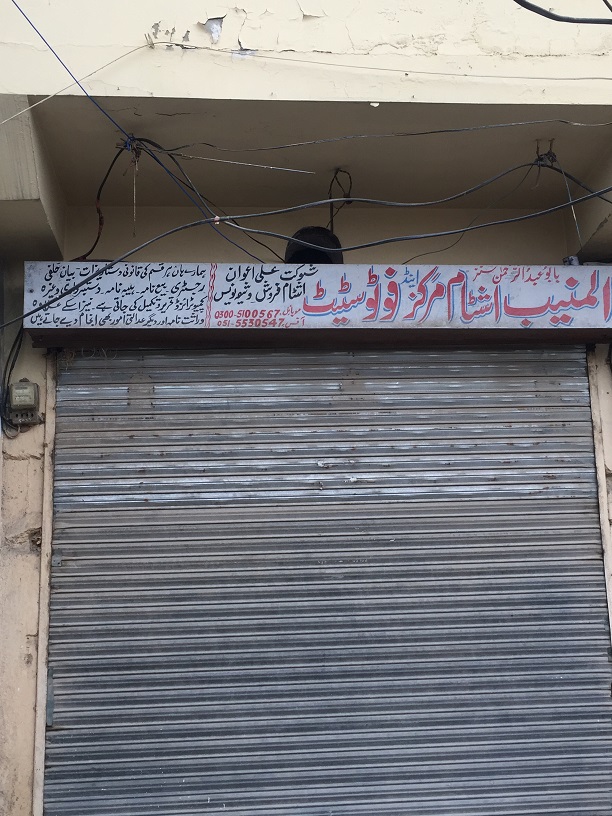 بابو عبدالرحمٰن سنز
المنیب اشٹام مرکز اینڈ فوٹو سٹیٹ
شوکت علی اعوان
اشٹام فروش و
موبائل 0300-5100567
آفس 051-5530547
ہمارے ہاں ہر قسم کی قانونی دستاویزات بیان حلفی
رجسٹری بیع نامہ ہبہ نامہ دستبرداری وغیرہ
کمپیوٹرائزڈ تحریر و تکمیل کی جاتی ہے نیز اسکے علاوہ
وراثت نامہ اور دیگر عدالتی امور بھی انجام دیے جاتے ہیں